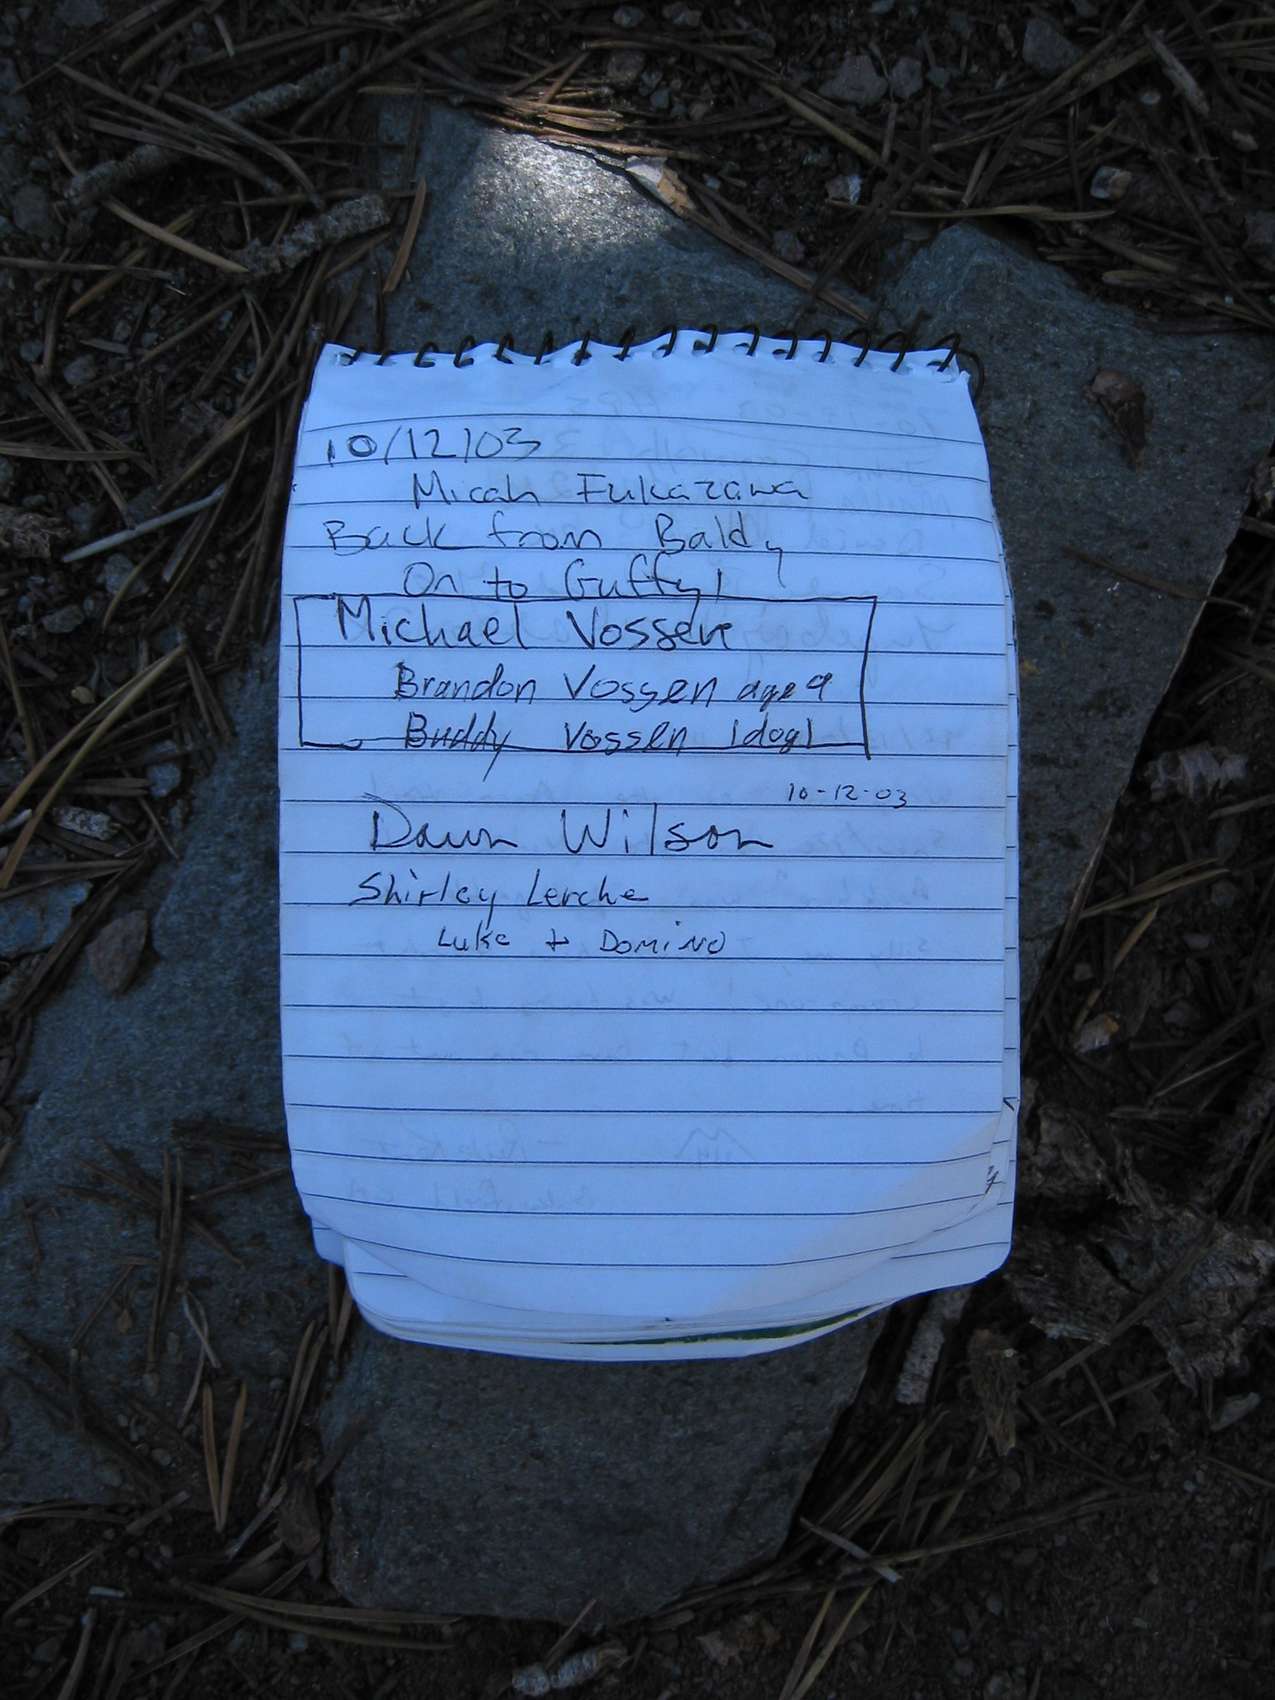 10/12/03
Micah Fukazawa
Back from Baldy
On to Guffy!
Michael Vossen
Brandon Vossen age 9
Buddy Vossen (dog)
10-12-03
Dawn Wilson
Shirley Lerche
Luke + Domino